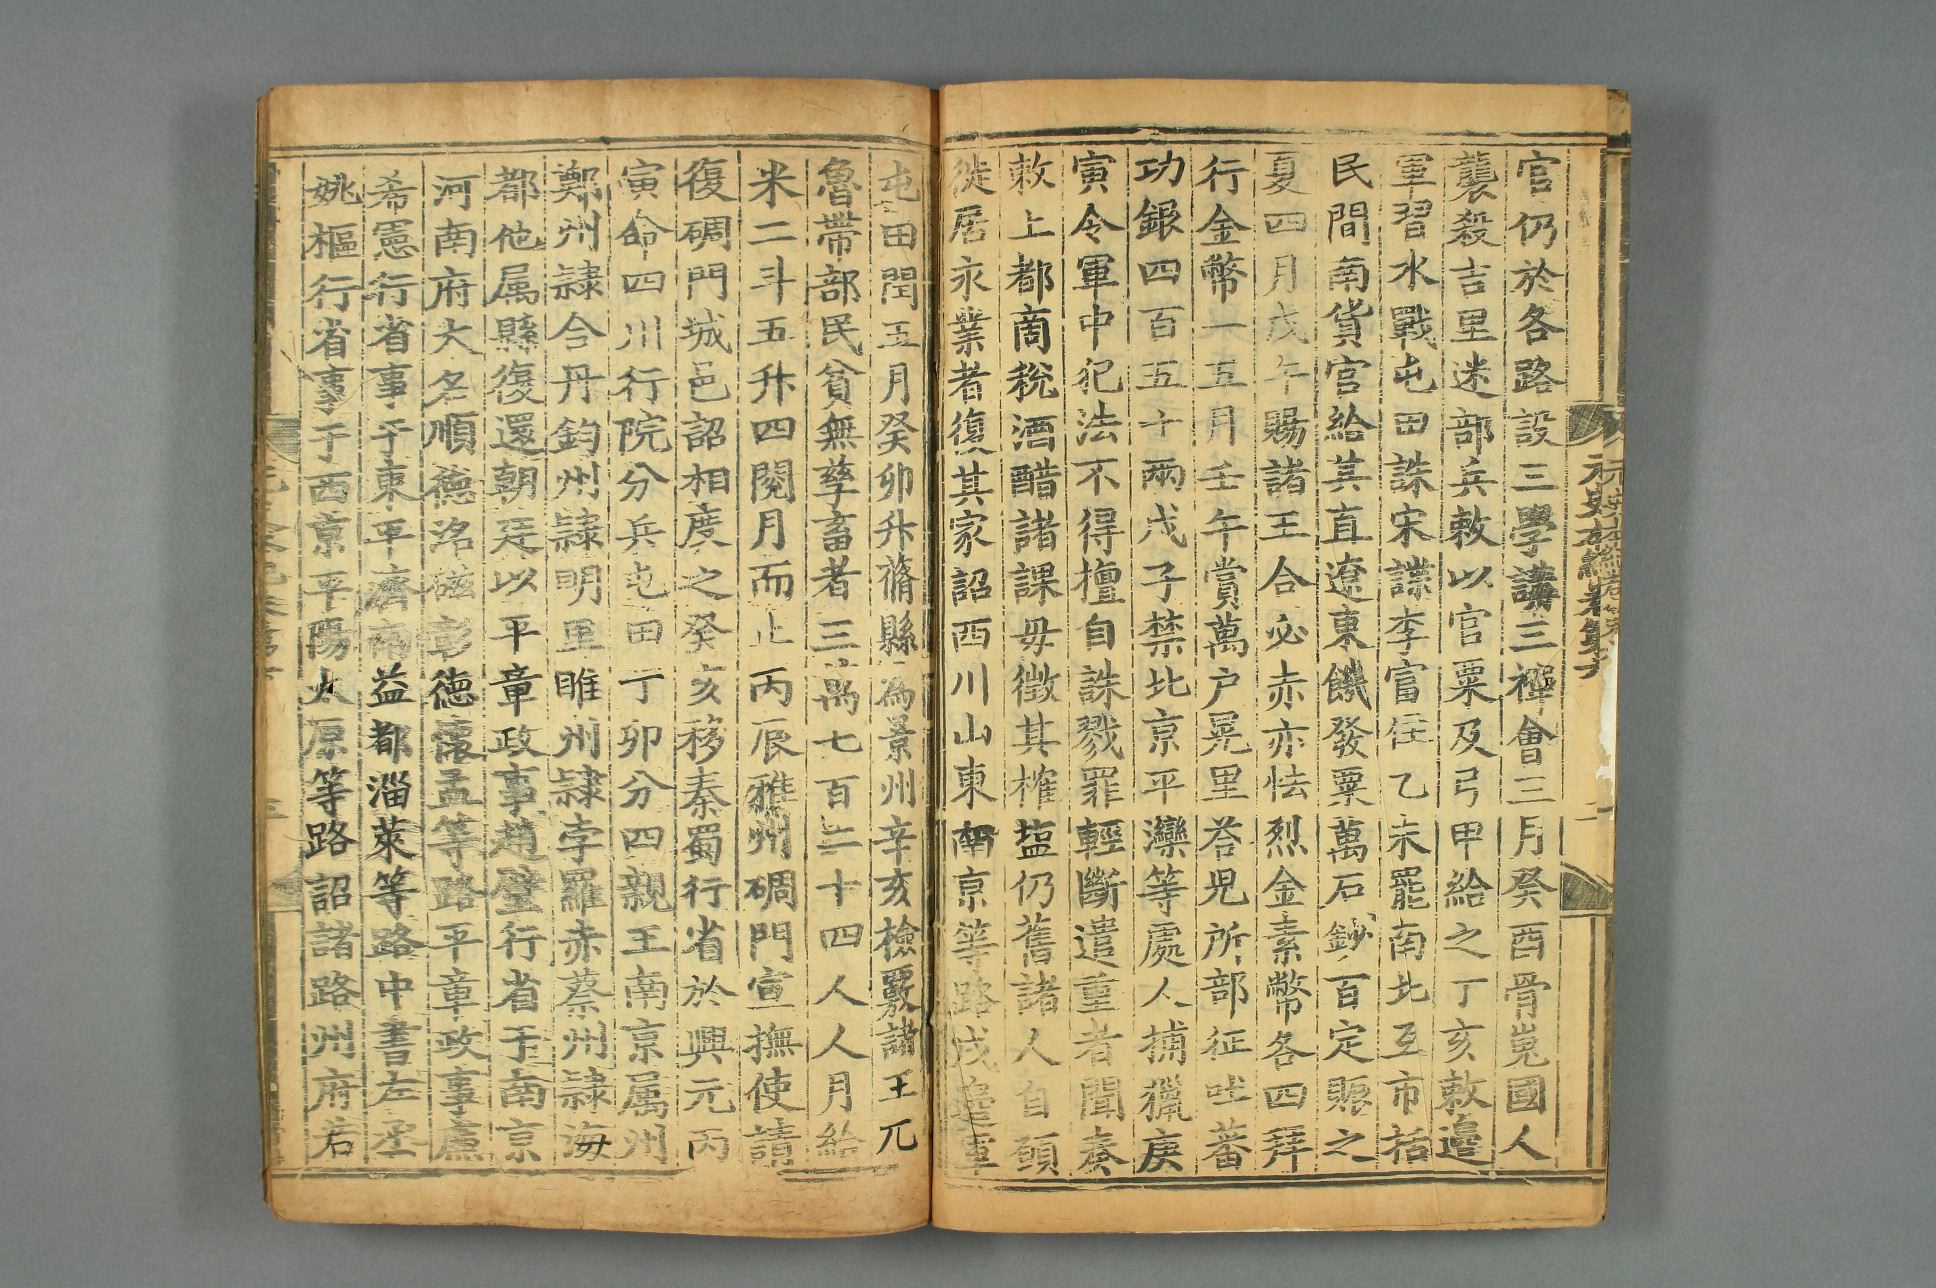 元史本紀卷第六
官仍於各路設三學講三禪會三月癸酉骨嵬國人
襲殺吉里迷部兵敕以官粟及弓甲給之丁亥敕邊
軍習水戰屯田誅宋諜李富住乙未罷南北互市括
民間南貨官給其直遼東饑發粟萬石鈔百定賑之
夏四月戊午賜諸王合必赤亦怯烈金素幣各四拜
行金幣一五月壬午賞萬户晃里荅児所部征吐蕃
功銀四百五十兩戊子禁北京平灤等處人捕獵庚
寅令軍中犯法不得擅自誅戮罪輕斷遣重者聞奏
敕上都商稅酒醋諸課毋徵其榷塩仍舊諸人自願
徙居永業者復其家詔西川山東南京等路戍邊軍
屯田閏五月癸卯升蓨縣爲景州辛亥檢覈諸王兀
魯帶部民貧無孳畜者三萬七百二十四人人月給
米二斗五升四閱月而止丙辰雅州碉門宣撫使請
復碉門城邑詔相度之癸亥移秦蜀行省於興元丙
寅命四川行院分兵屯田丁卯分四親王南京属州
鄭州隸合丹鈞州隸明里睢州隸孛羅赤蔡州隸海
都他属縣復還朝廷以平章政事趙璧行省于南京
河南府大名順德洺磁彰德懷孟等路平章政事廉
希憲行省事于東平濟南益都淄萊等路中書左丞
姚樞行省事于西京平陽太原等路詔諸路州府若